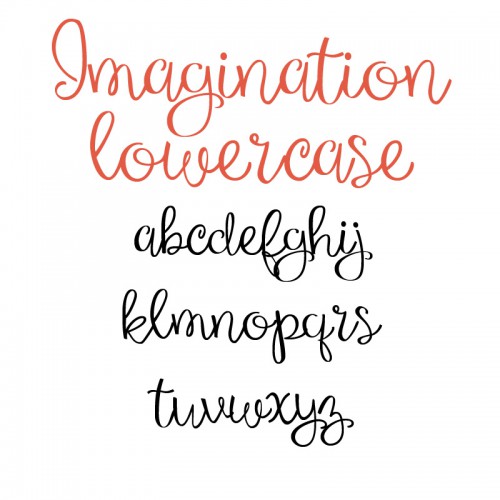 Imagination
lowercase
abcdefghij
klmnopqrs
tuvwxyz